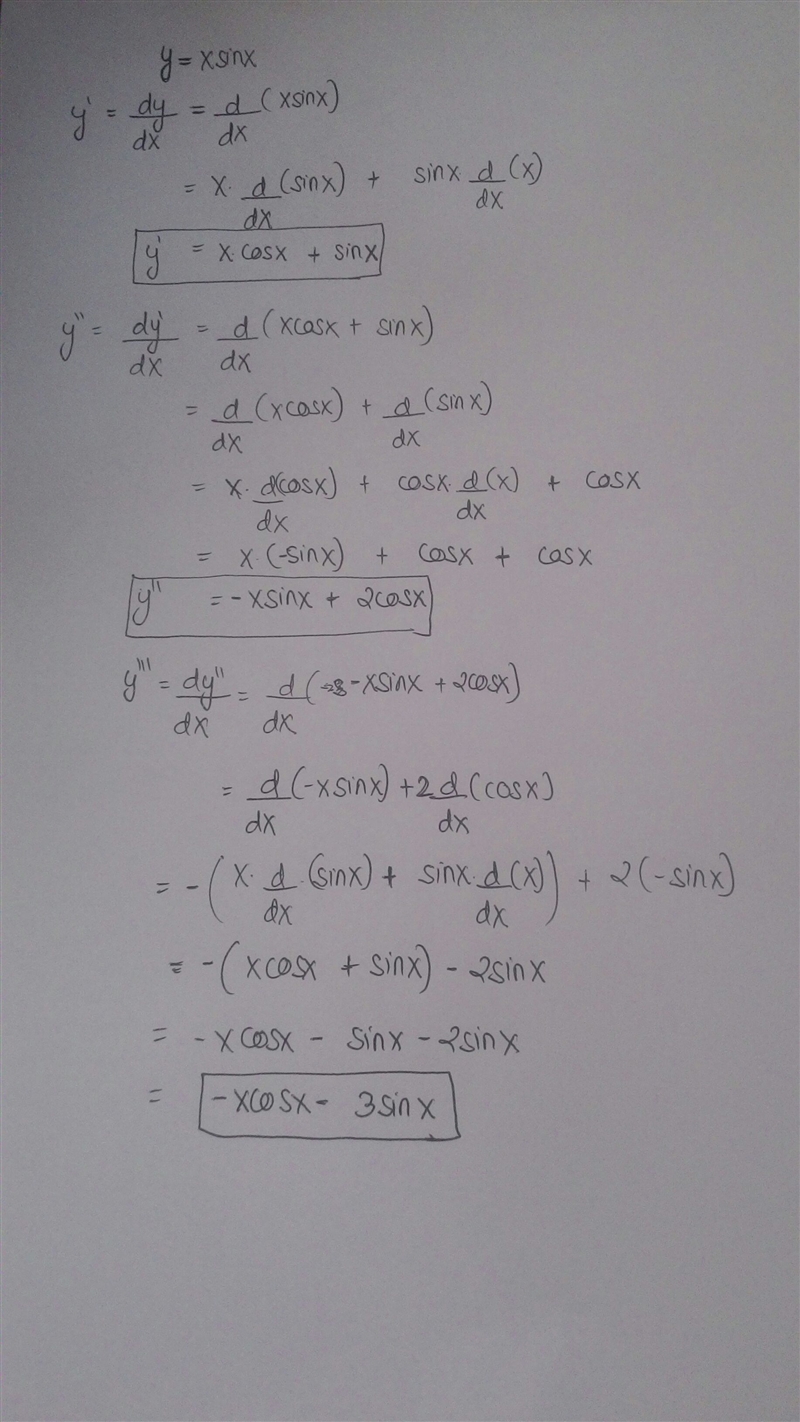 y = xsinx
y' = dy/dx = d/dx (xsinx)
= x· d/dx (sinx) + sinx· d/dx (x)
y' = x·cosx + sinx
y'' = dy'/dx = d/dx (xcosx + sinx)
= d/dx (xcosx) + d/dx (sinx)
= x· d/dx (cosx) + cosx· d/dx (x) + cosx
= x·(-sinx) + cosx + cosx
y'' = -xsinx + 2cosx
y''' = dy''/dx = d/dx (-xsinx + 2cosx)
= d/dx (-xsinx) + 2 d/dx (cosx)
= -(x· d/dx ·(sinx) + sinx· d/dx (x)) + 2(-sinx)
= -(xcosx + sinx) - 2sinx
= -xcosx - sinx - 2sinx
= -xcosx - 3sinx